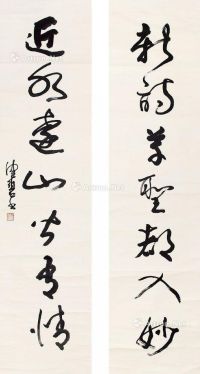 新詩草聖都入妙
近水遠山皆有情